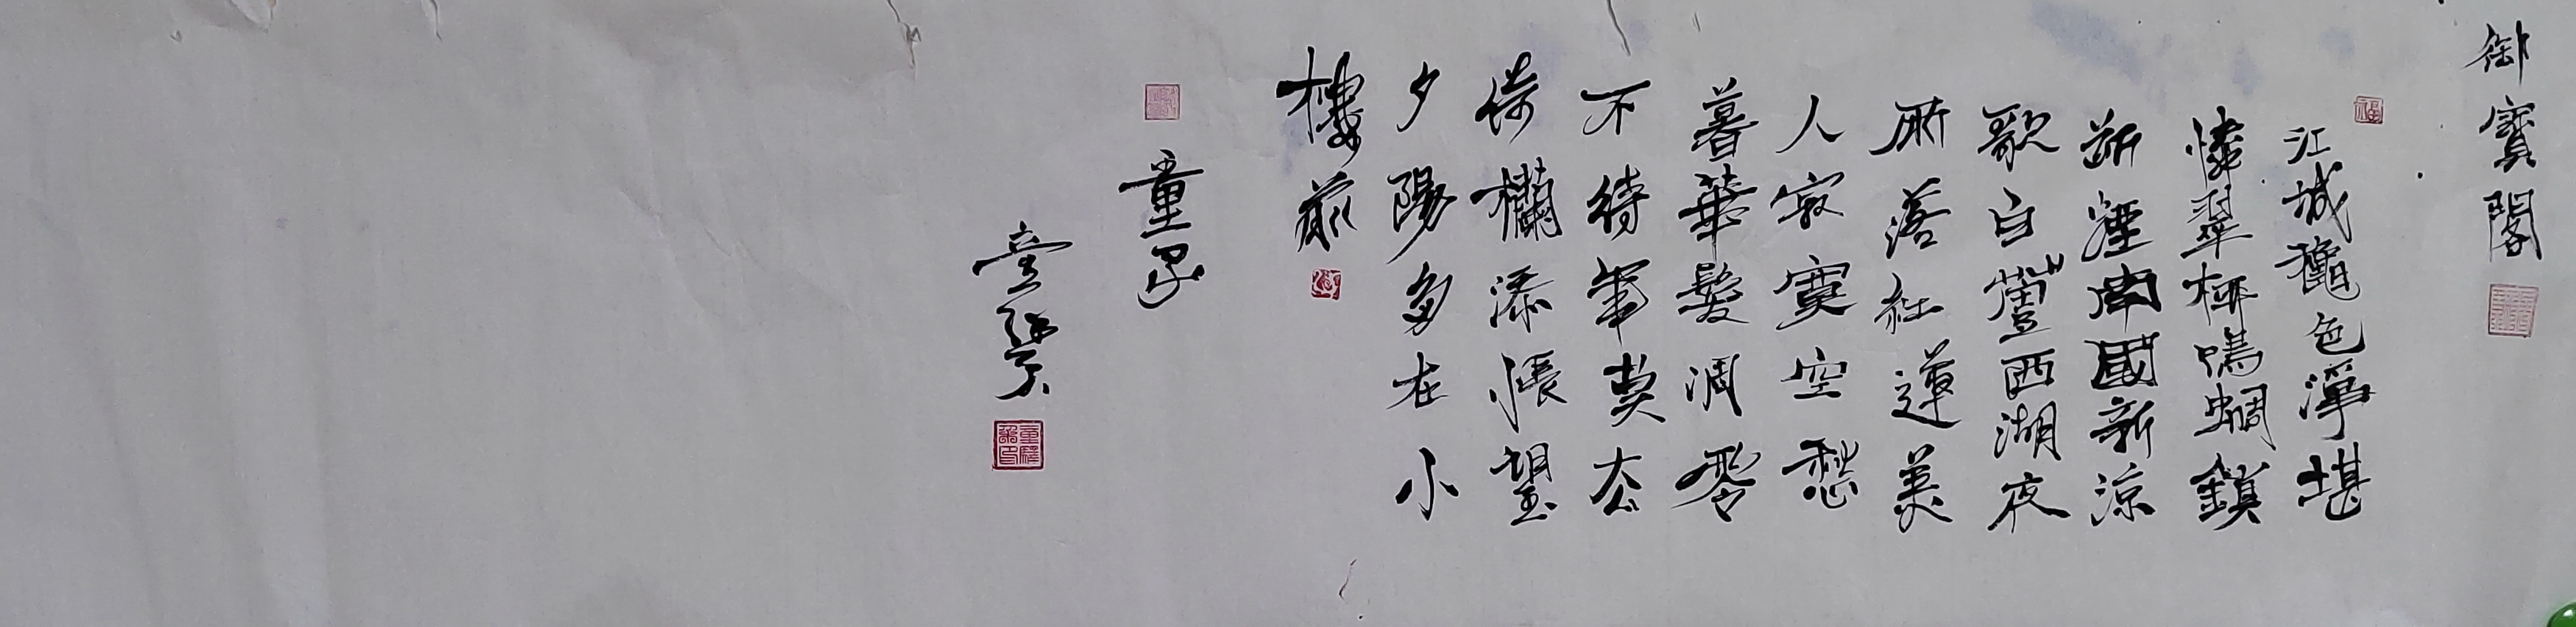 御寶閣
江城秋色淨堪
憐翠柳鳴蜩鎖
斷煙南國新涼
歌白苧西湖夜
雨落紅蓮美
人寂寞空愁
暮華髮凋零
不待年莫去
倚欄添悵望
夕陽多在小
樓前
童子
童驛